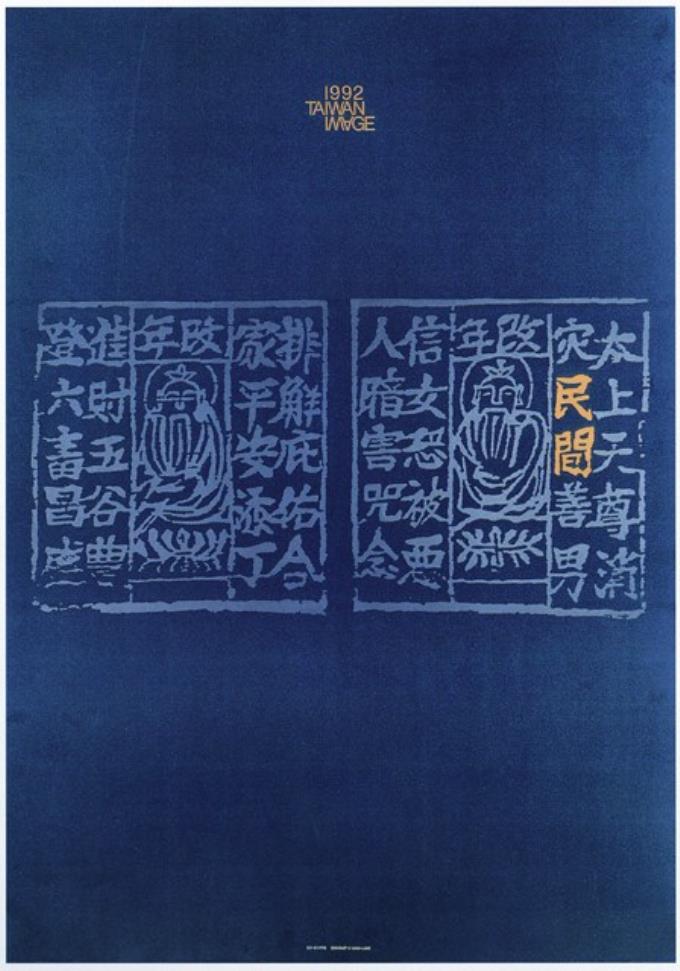 1992
TAIWAN
IMAGE
太上天尊消
灾民間善男
改年
信女恐被悪
人暗害咒念
排觧庇佑合
家平安添丁
改年
進財五谷豊
登六畜昌盛